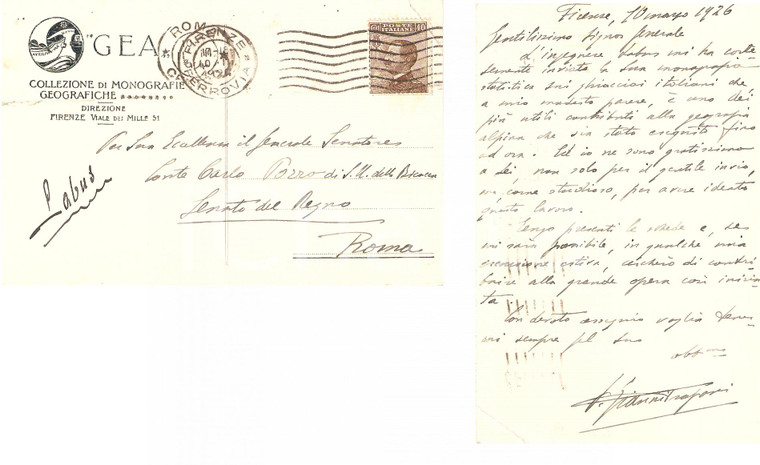 "GEA
COLLEZIONE DI MONOGRAFIE
GEOGRAFICHE
DIREZIONE
FIRENZE VIALE DEI MILLE 51
ROMA
FIRENZE
FERROVIA
POSTE ITALIANE 40
Per Sua Eccellenza il Generale Senatore
Conte Carlo Porro di S. M. della Bicocca
Senato del Regno
Roma
Labus
Firenze, 10 marzo 1926
Gentilissimo Signor Generale
L'ingegnere Labus mi ha corte-
semente inviato la Sua monografia
statistica sui ghiacciai italiani che
a mio modesto parere, è uno dei
più utili contributi alla geografia
alpina che sia stato eseguito fino
ad ora. Ed io ne sono gratissimo
a Lei, non solo per il gentile invio,
ma come studioso, per avere ideato
questo lavoro.
Tengo presenti le schede e, se
mi sarà possibile, in qualche mia
escursione estiva, cercherò di contri-
buire alla grande opera così inizia-
ta
Con devoto ossequio voglia
mi sempre pel Suo
obbmo
Giannitrapani